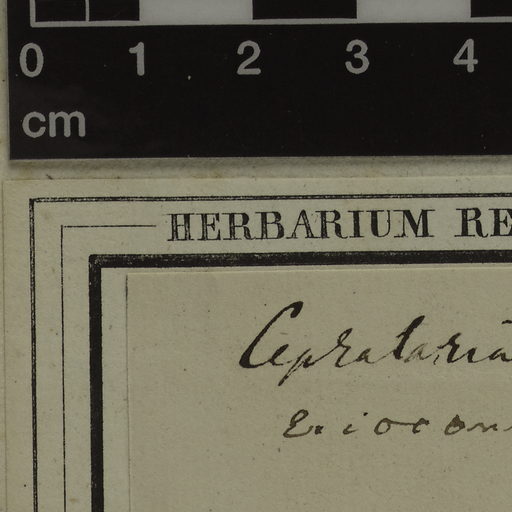 0 1 2 3 4
cm
HERBARIUM RE
Cephalaria